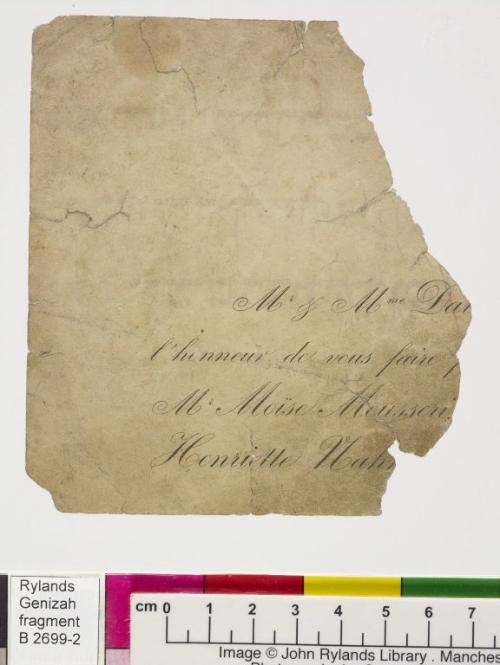 Mr & Mme Da
l'honneur de vous faire
Mr Moïse Mousseri
Henriette Nah
Rylands
Genizah
fragment
B 2699-2
cm 0 1 2 3 4 5 6 7
Image © John Rylands Library . Manches